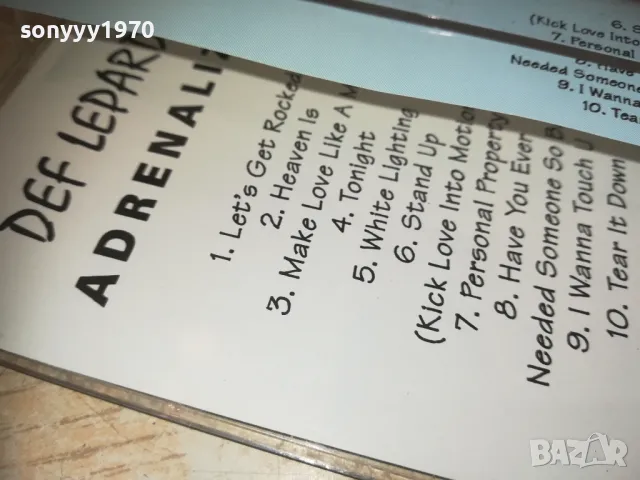 sonyyy1970
DEF LEPARD
ADRENALI
1. Let's Get Rocked
2. Heaven Is
3. Make Love Like A M
4. Tonight
5. White Lighting
6. Stand Up
(Kick Love Into Motion
7. Personal Property
8. Have You Ever
Needed Someone So B
9. I Wanna Touch U
10. Tear It Down
6. S
(Kick Love Into
7. Personal
8. Have
Needed Someone
9. I Wanna
10. Tear
BAZAR
bg